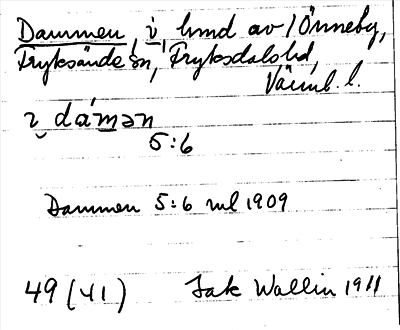 Dammen, i, hmd av Önneby,
Fryksände sn, Fryksdals hd,
Värml. l.
i dámən
5:6
Dammen 5:6 ml 1909
49 (41) Jak Wallin 1911